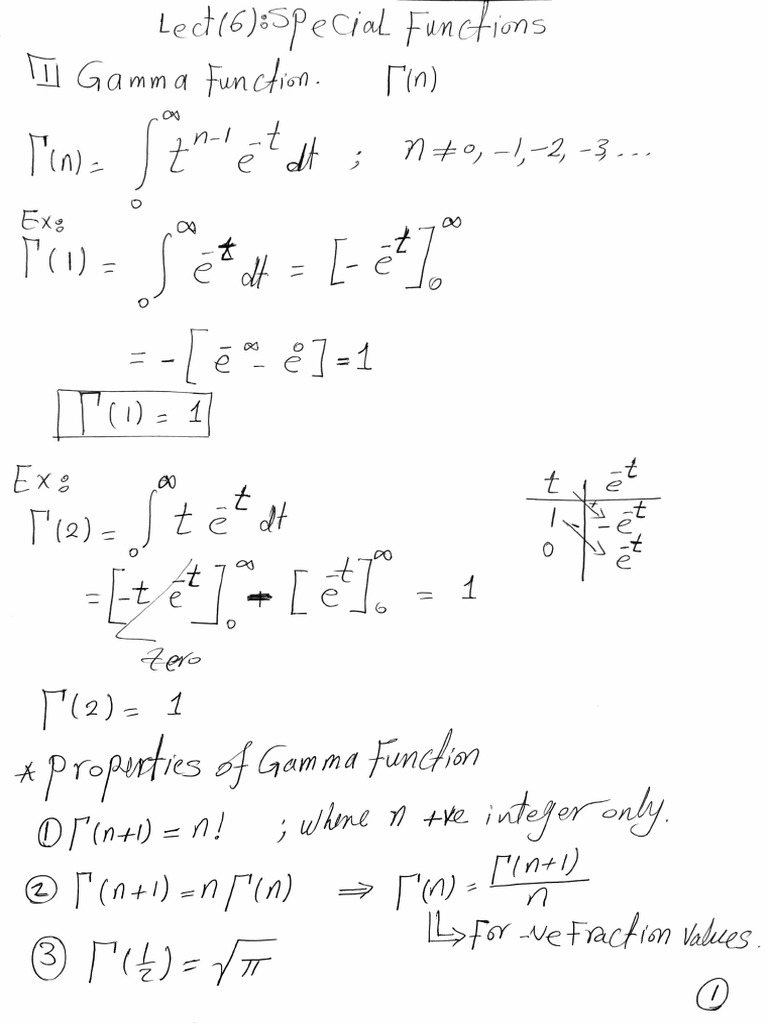 Lect(6): Special Functions
1 Gamma Function. Γ(n)
Γ(n) = ∫₀^∞ t^{n-1} e^{-t} dt ; n ≠ 0, -1, -2, -3, ...
Ex:
Γ(1) = ∫₀^∞ e^{-t} dt = [- e^{-t}]₀^∞
= - [e^{-∞} - e^{0}] = 1
Γ(1) = 1
Ex:
Γ(2) = ∫₀^∞ t e^{-t} dt
t | e^{-t}
1 | + - e^{-t}
0 | - e^{-t}
= [-t e^{-t}]₀^∞ - [e^{-t}]₀^∞ = 1
Zero
Γ(2) = 1
* Properties of Gamma Function
① Γ(n+1) = n! ; where n +ve integer only.
② Γ(n+1) = n Γ(n) ⇒ Γ(n) = Γ(n+1)/n
↳ For -ve Fraction values.
③ Γ(1/2) = √π
①